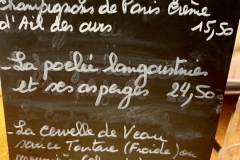 Champignons de Paris Crème
d'Ail des ours 15,50
- La poêlée langoustines
et ses asperges 24,50
- La cervelle de Veau
sauce Tartare (Froide) ou